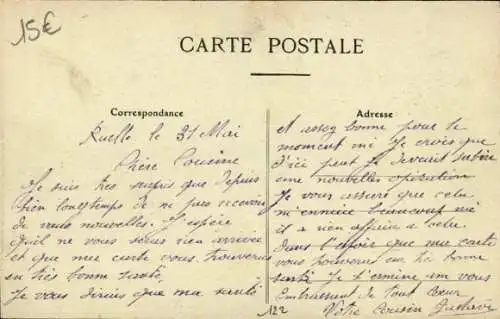 15€
CARTE POSTALE
Correspondance
Ruelle le 31 Mai
Chère Cousine
Je suis très surpris que depuis
bien longtemps de ne pas recevoir
de vous nouvelles. J'espère
qu'il ne vous seras rien arrivée
et que mes carte vous trouverons
en très bonne santé.
Je vous dirais que ma santé
Adresse
et assez bonne pour le
moment mi Je crois que
d'ici peut Je devrait subire
une nouvelles opération
Je vous assure que cela
m'ennuie beaucoup mé
il a rien affaire a cela
Dans l'espoir que ma carte
vous trouveras en bonne
santé Je termine en vous
Embrassent de tout cœur
Votre Cousin Gustave
122